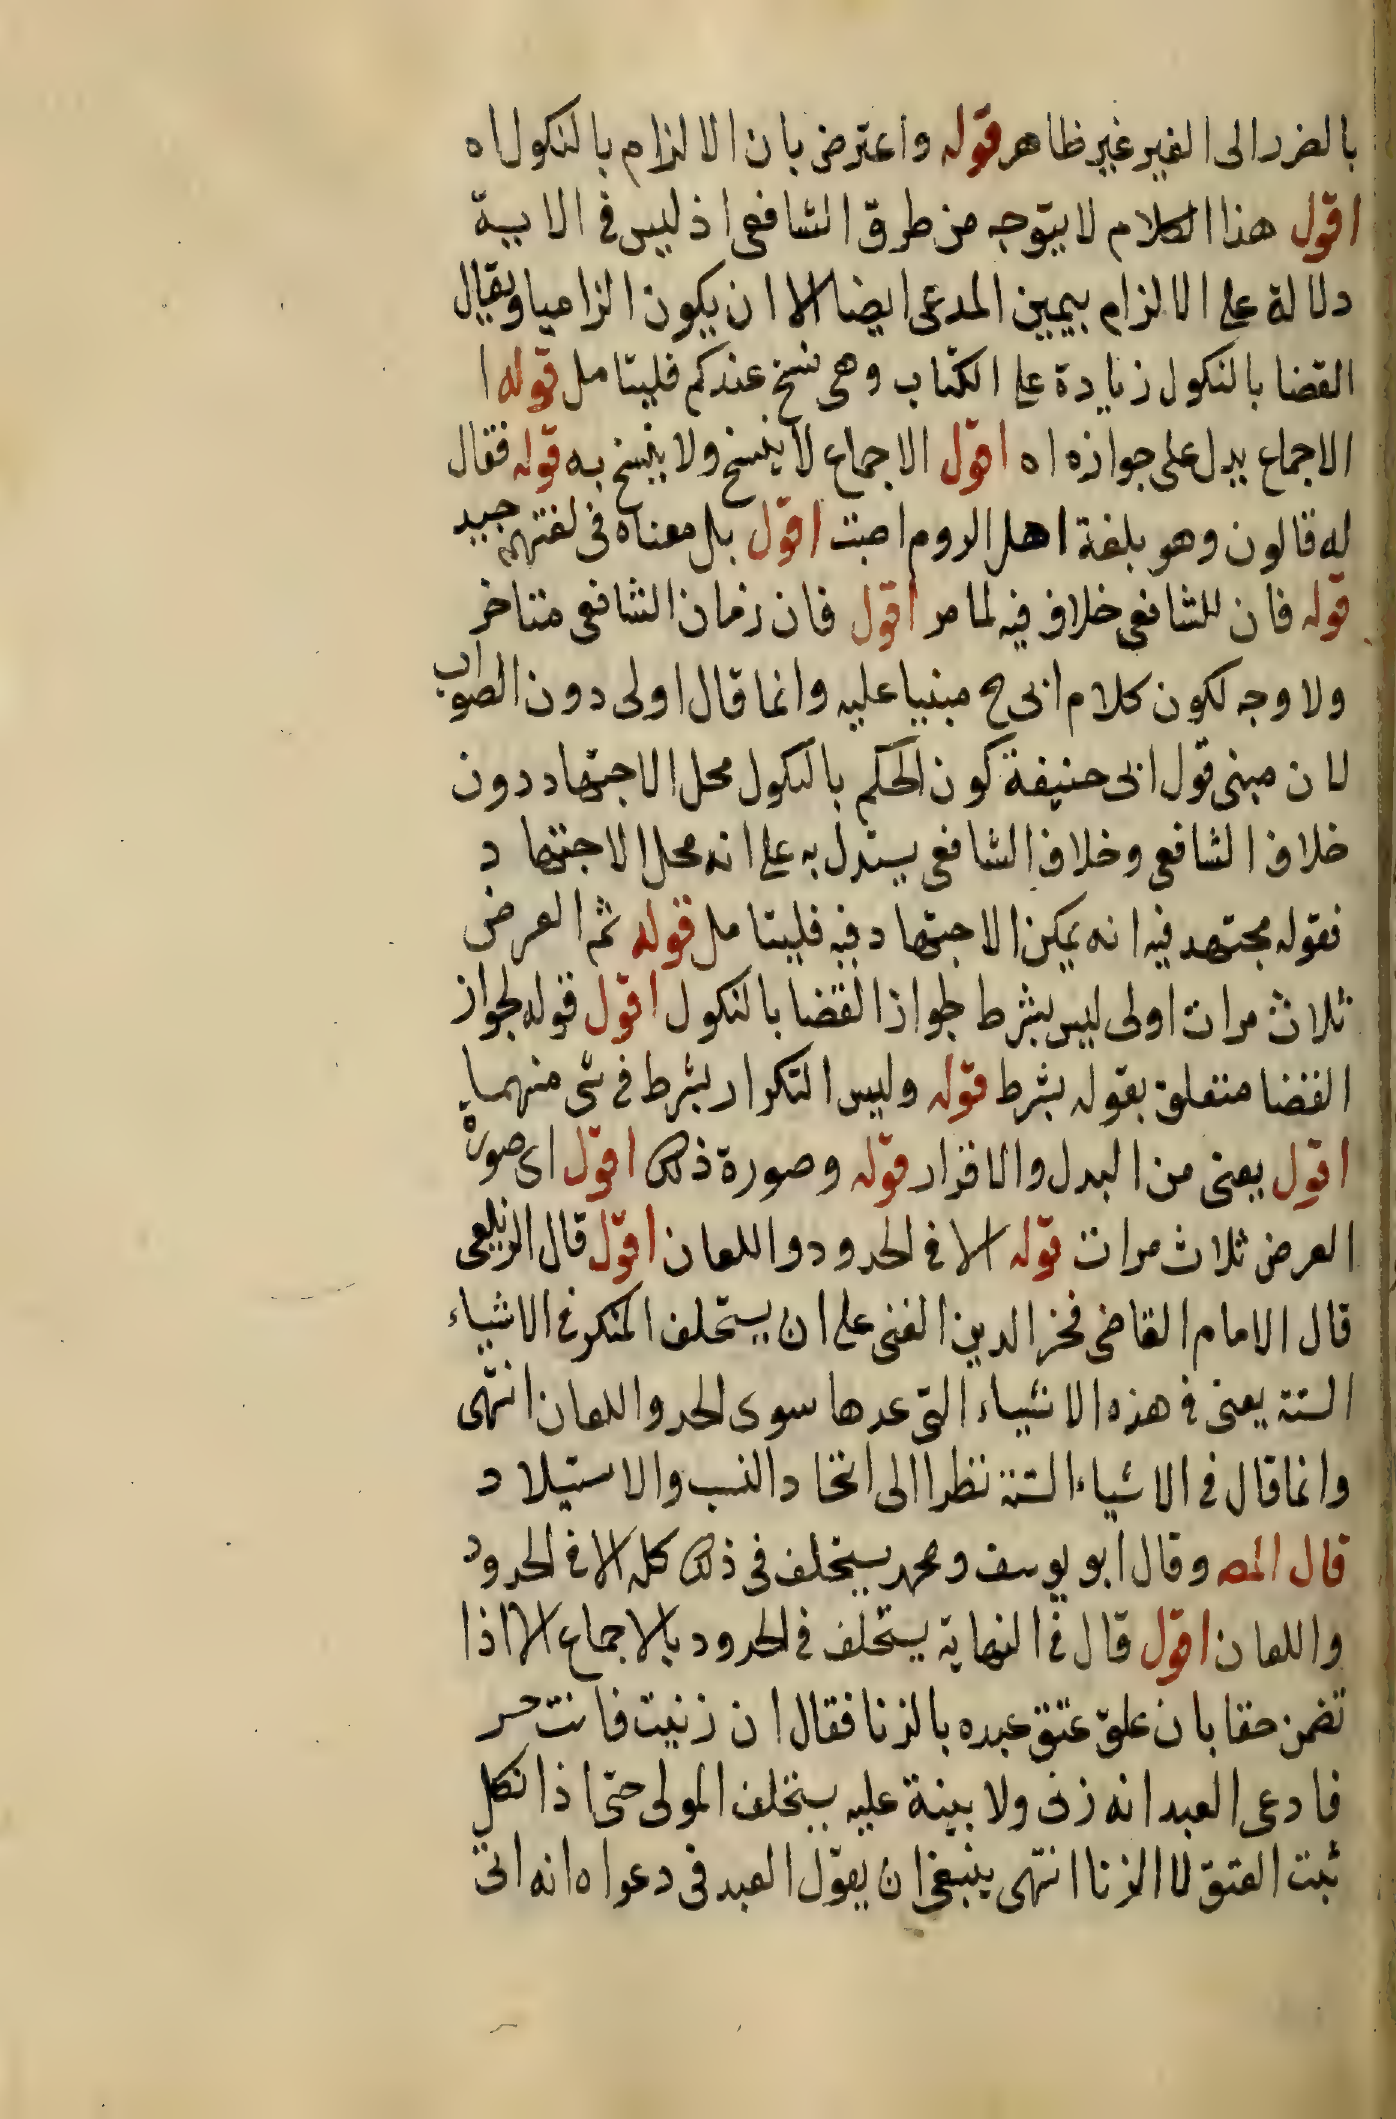 بالضرر الى الغير غير ظاهر قوله واعترض بان الالزام بالنكول اه
اقول هذا الكلام لا يتوجه من طرق الشافعى اذ ليس فى الاية
دلالة على الالزام بيمين المدعى ايضا الا ان يكون الزاميا ويقال
القضا بالنكول زيادة على الكتاب وهى نسخ عندكم فليتامل قوله ا
الاجماع يدل على جوازه اه اقول الاجماع لا ينسخ ولا ينسخ به قوله فقال
له قالون وهو بلغة اهل الروم اصبت اقول بل معناه فى لغتهم جيد
قوله فان للشافعى خلاف فيه لما مر اقول فان زمان الشافعى متاخر
ولا وجه لكون كلام ابى ح مبنيا عليه وانما قال اولى دون الصواب
لان مبنى قول ابى حنيفة كون الحكم بالنكول محل الاجتهاد دون
خلاف الشافعى وخلاف الشافعى يستدل به على انه محل الاجتهاد
فقوله مجتهد فيه انه يمكن الاجتهاد فيه فليتامل قوله ثم العرض
ثلاث مرات اولى ليس بشرط لجواز القضا بالنكول اقول قوله لجواز
القضا متعلق بقوله بشرط قوله وليس التكرار بشرط فى شى منهما
اقول يعنى من البدل والاقرار قوله وصورة ذلك اقول اى صورة
العرض ثلاث مرات قوله الا فى الحدود واللعان اقول قال الزيلعى
قال الامام القاضى فخر الدين الفتى على ان يستحلف المنكر فى الاشياء
الستة يعنى فى هذه الاشياء التى عدها سوى الحد واللعان انتهى
وانما قال فى الاشياء الستة نظرا الى اتحاد النسب والاستيلاد
قال المص وقال ابو يوسف ومحمد يستحلف فى ذلك كله الا فى الحدود
واللعان اقول قال فى النهاية يستحلف فى الحدود بالاجماع الا اذا
تضمن حقا بان علق عتق عبده بالزنا فقال ان زنيت فانت حر
فادعى العبد انه زنى ولا بينة عليه يستحلف المولى حتى اذا نكل
ثبت العتق لا الزنا انتهى ينبغى ان يقول العبد فى دعواه انه اتى